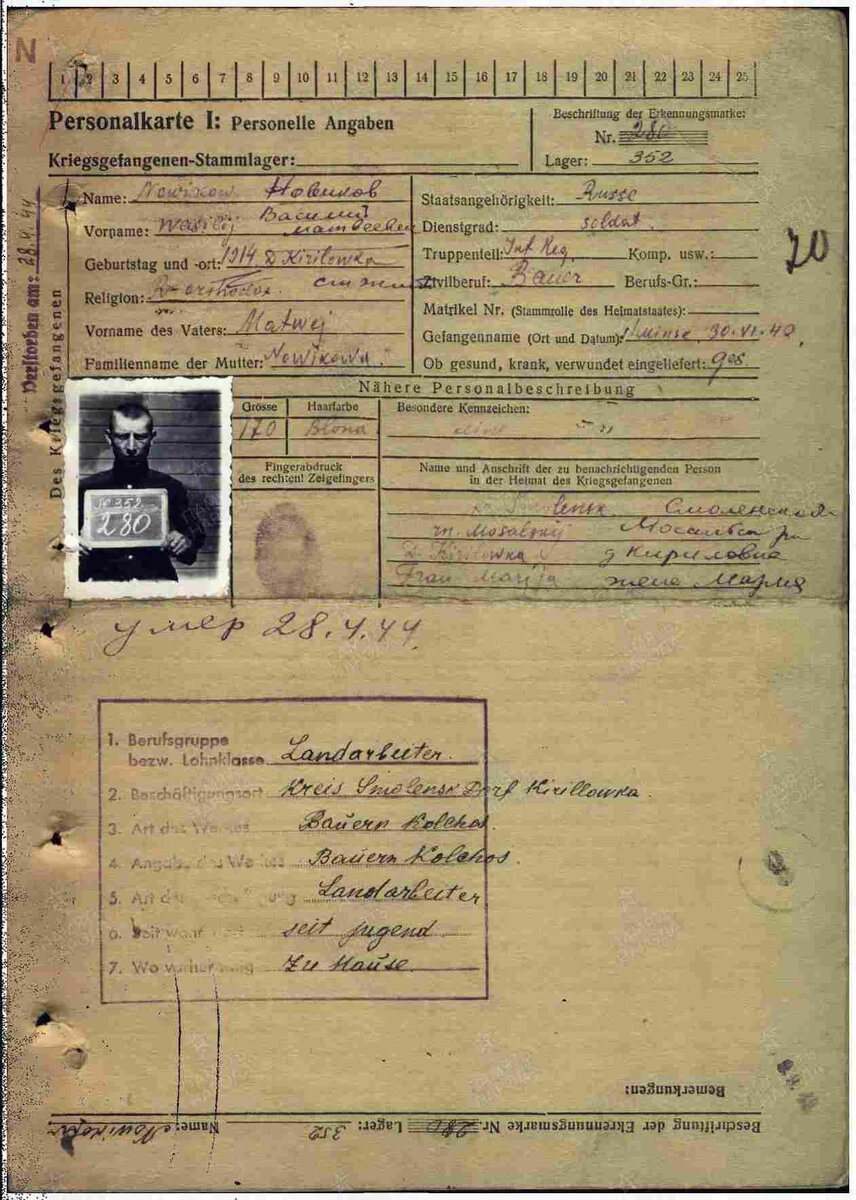 N
1 2 3 4 5 6 7 8 9 10 11 12 13 14 15 16 17 18 19 20 21 22 23 24 25
Personalkarte I: Personelle Angaben
Kriegsgefangenen-Stammlager:
Beschriftung der Erkennungsmarke:
Nr. 280
Lager: 352
Des Kriegsgefangenen
Verstorben am: 28.4.44
Name: Nowikow Новиков
Vorname: Wasilij Василий
Geburtstag und -ort: 1914 D Kirilowka
Religion:
Vorname des Vaters: Matwej
Familienname der Mutter: Nowikowa
Staatsangehörigkeit: Russe
Dienstgrad: soldat.
Truppenteil: Inf Reg. Komp. usw.:
Zivilberuf: Bauer Berufs-Gr.:
Matrikel Nr. (Stammrolle des Heimatstaates):
Gefangenname (Ort und Datum): Minsk
Ob gesund, krank, verwundet eingeliefert: ges.
Nähere Personalbeschreibung
Grösse Haarfarbe Besondere Kennzeichen:
170 Blond
Fingerabdruck
des rechten! Zeigefingers
Name und Anschrift der zu benachrichtigenden Person
in der Heimat des Kriegsgefangenen
Smolensk
Mosalskij
D. Kirilowka д Кириловка
Frau Marija жена Мария
352
280
умер 28.4.44
1. Berufsgruppe
bezw. Lohnklasse Landarbeiter.
2. Beschäftigungsort Kreis Smolensk Dorf Kirillowka.
3. Art des Werkes Bauern Kolchos.
4. Angabe des Werkes Bauern Kolchos.
5. Art der Landarbeiter
6. Seit wann seit jugend
7. Wo zu Hause.
Bemerkungen:
Beschriftung der Erkennungsmarke Nr. 280 Lager: 352 Name: Nowikow